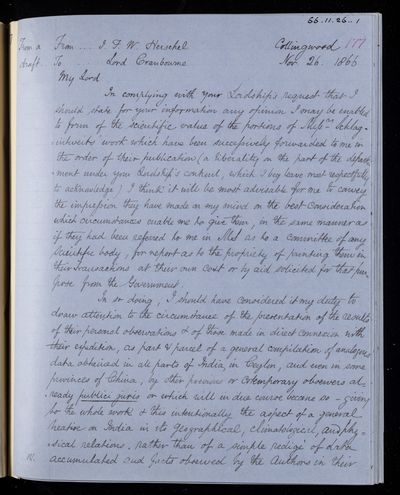 66.11.26..1
From a From .... J. F. W. Herschel Collingwood 177
draft. To .... Lord Cranbourne Nov 26. 1866
My Lord
In complying with your Lordship's request that I
should state for your information any opinion I may be enabled
to form of the scientific value of the portions of Messrs Schlag-
intweits' work which have been successively forwarded to me in
the order of their publication (a liberality on the part of the depart
-ment under your Lordship's control, which I beg leave most respectfully
to acknowledge) I think it will be most adviseable for me to convey
the impression they have made on my mind on the best consideration
which circumstances enable me to give them, in the same manner as
if they had been referred to me in MS as to a committee of any
Scientific body, for report as to the propriety of printing them in
their Transactions at their own cost or by aid solicited for that pur
pose from the Government.
In so doing, I should have considered it my duty to
draw attention to the circumstance of the presentation of the results
of their personal observations & of those made in direct connexion with
their expedition, as part & parcel of a general compilation of analogous
data obtained in all parts of India, in Ceylon, and even in some
provinces of China, by other previous or cotemporary observers al-
ready publici juris or which will in due course become so - giving
to the whole work & this intentionally the aspect of a general
treatise on India in its geographical, climatological, and phy-
-sical relations, rather than of a simple redigé of data
accumulated and facts observed by the Authors in their